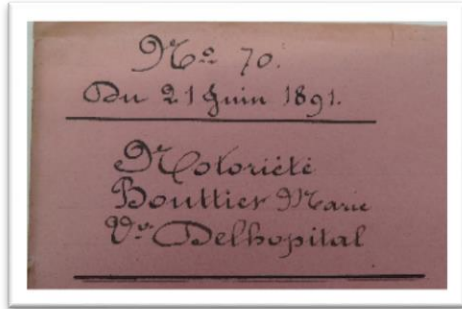 No 70.
Du 21 Juin 1891.
Notoriété
Bouttier Marie
Ve Delhopital